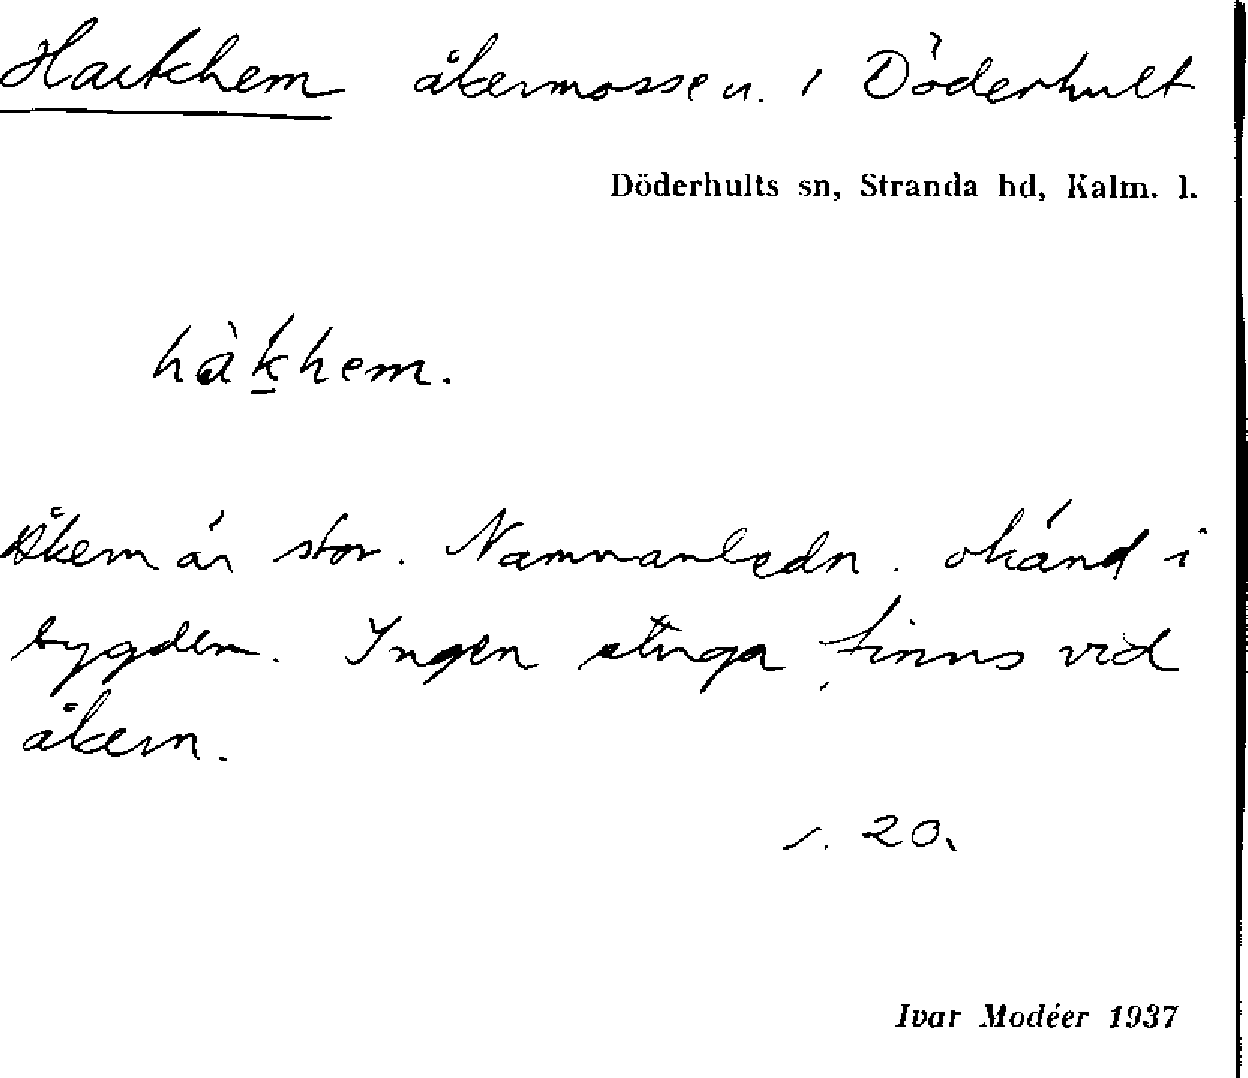 Harkhem åkermosse u. i Döderhult
Döderhults sn, Stranda hd, Kalm. l.
hàk̲hem.
Åkern är stor. Namnanledn. okänd i
bygden. Ingen stuga finns vid
åkern.
s. 20.
Ivar Modéer 1937